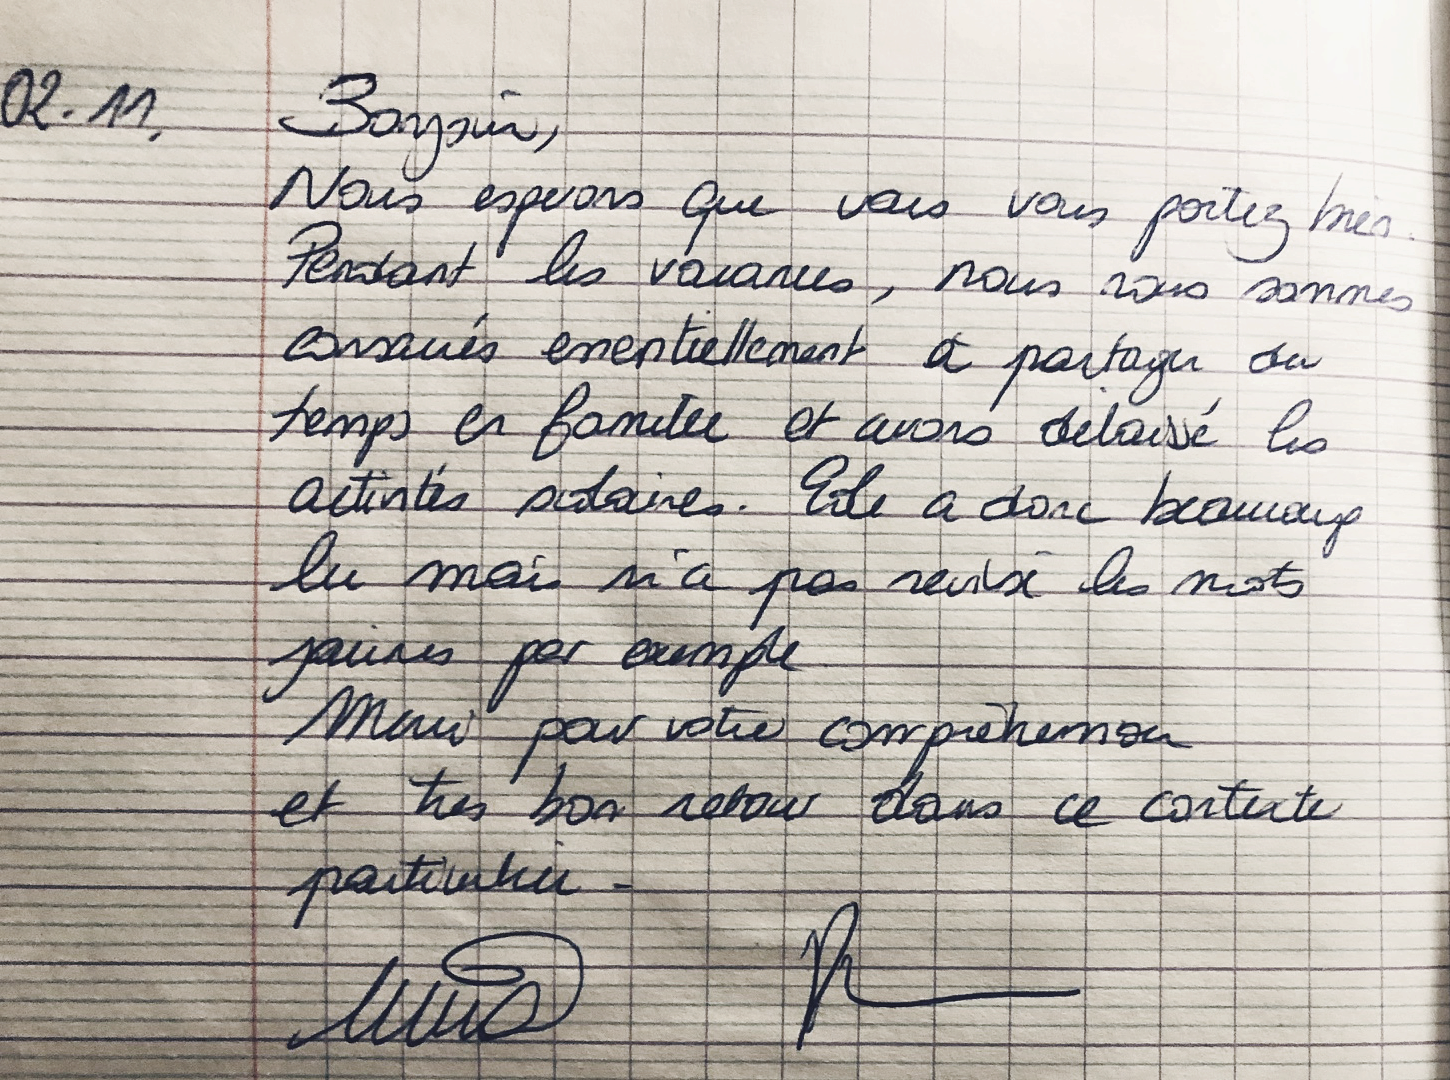 02.11.
Bonjour,
Nous esperons que vous vous portez bien.
Pendant les vacances, nous nous sommes
consacrés essentiellement à partager du
temps en famille et avons délaissé les
activités scolaires. a donc beaucoup
lu mais n'a pas revisé les mots
jaunes par exemple
Merci pour votre compréhension
et très bon retour dans ce contexte
particulier -